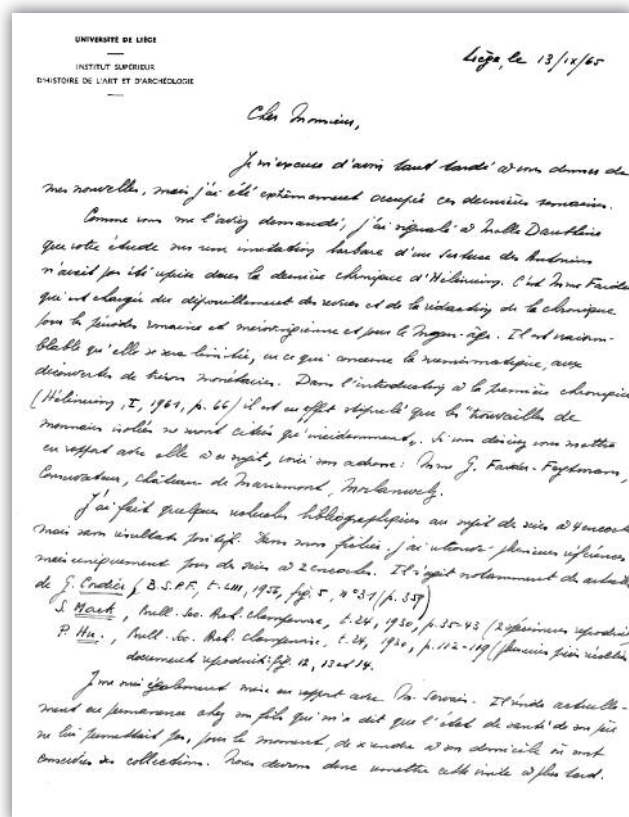 UNIVERSITÉ DE LIÉGE
INSTITUT SUPÉRIEUR
D'HISTOIRE DE L'ART ET D'ARCHÉOLOGIE
Liège, le 13/IX/65
Cher Monsieur,
Je m'excuse d'avoir tant tardé à vous donner de
mes nouvelles, mais j'ai été extrêmement occupée ces dernières semaines.
Comme vous me l'aviez demandé, j'ai signalé à Melle
que votre étude sur une imitation barbare d'un sesterce des Antonins
n'avait pas été reprise dans la dernière chronique d'Hélinium. C'est Mme Faider
qui est chargée du dépouillement des revues et de la rédaction de la chronique
pour les périodes romaine et mérovingienne et pour le Moyen-âge. Il est vraisem-
blable qu'elle se sera limitée, en ce qui concerne la numismatique, aux
découvertes de trésors monétaires. Dans l'introduction à la première chronique
(Hélinium, I, 1961, p. 66) il est en effet stipulé que les "trouvailles de
monnaies isolées ne sont citées qu'incidemment". Si vous désirez vous mettre
en rapport avec elle à ce sujet, voici son adresse : Mme G. Faider-Feytmans,
Conservateur, château de Mariemont, Morlanwelz.
J'ai fait quelques recherches bibliographiques au sujet de scies à 4 encoches
mais sans résultats positifs. Dans mes fichiers, j'ai retrouvé plusieurs références
mais uniquement pour des scies à 2 encoches. Il s'agit notamment des articles
de G. Cordier, B.S.P.F., t. LIII, 1956, fig. 5, n° 31 (p. 359)
S. , Bull. Soc. Arch. Champenoise, t. 24, 1930, p. 35-43 (2 spécimens reproduits
P. Hu., Bull. Soc. Arch. Champenoise, t. 24, 1930, p. 112-119 (plusieurs pièces récoltées
document reproduit : fig. 12, 13 et 14.
Je me suis également mise en rapport avec M. Servais. Il réside actuelle-
ment en permanence chez son fils qui m'a dit que l'état de santé de son père
ne lui permettait pas, pour le moment, de se rendre à son domicile où sont
conservées ses collections. Nous devrons donc remettre cette visite à plus tard.